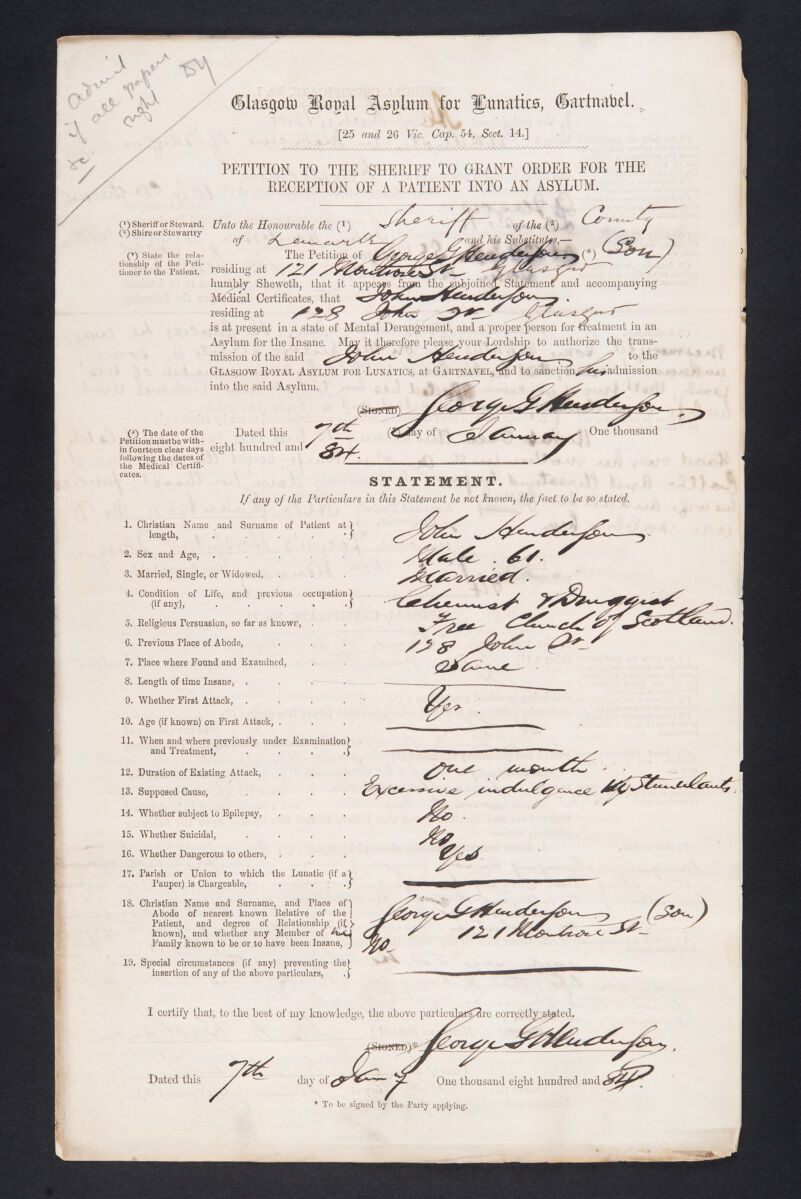 admit
if all papers
right DY
&c
Glasgow Royal Asylum for Lunatics, Gartnavel.
[25 and 26 Vic. Cap. 54, Sect. 14.]
PETITION TO THE SHERIFF TO GRANT ORDER FOR THE
RECEPTION OF A PATIENT INTO AN ASYLUM.
(¹) Sheriff or Steward.
(²) Shire or Stewartry
Unto the Honourable the (¹) Sheriff of the (²) County
of Lanark and his Substitutes,—
(³) State the rela-
tionship of the Peti-
tioner to the Patient.
The Petition of George G Henderson (³) (Son)
residing at 121 Montrose St Glasgow
humbly Sheweth, that it appears from the subjoined Statement and accompanying
Medical Certificates, that John Henderson
residing at 128 John St Glasgow
is at present in a state of Mental Derangement, and a proper person for treatment in an
Asylum for the Insane. May it therefore please your Lordship to authorize the trans-
mission of the said John Henderson to the
GLASGOW ROYAL ASYLUM FOR LUNATICS, AT GARTNAVEL, and to sanction his admission
into the said Asylum.
(SIGNED) George G Henderson.
(³) The date of the
Petition must be with-
in fourteen clear days
following the dates of
the Medical Certifi-
cates.
Dated this 7th (³) day of January One thousand
eight hundred and 84.
STATEMENT.
If any of the Particulars in this Statement be not known, the fact to be so stated.
1. Christian Name and Surname of Patient at
length, John Henderson
2. Sex and Age, Male . 61.
3. Married, Single, or Widowed, Married.
4. Condition of Life, and previous occupation
(if any), Chemist & Druggist
5. Religious Persuasion, so far as known, Free Church of Scotland.
6. Previous Place of Abode, 128 John St
7. Place where Found and Examined, Same
8. Length of time Insane,
9. Whether First Attack, Yes.
10. Age (if known) on First Attack,
11. When and where previously under Examination
and Treatment,
12. Duration of Existing Attack, One month.
13. Supposed Cause, Excessive indulgence in Stimulants.
14. Whether subject to Epilepsy, No.
15. Whether Suicidal, No
16. Whether Dangerous to others, Yes
17. Parish or Union to which the Lunatic (if a
Pauper) is Chargeable,
18. Christian Name and Surname, and Place of
Abode of nearest known Relative of the
Patient, and degree of Relationship (if George G Henderson (Son)
known), and whether any Member of his 121 Montrose St
Family known to be or to have been Insane, No
19. Special circumstances (if any) preventing the
insertion of any of the above particulars,
I certify that, to the best of my knowledge, the above particulars are correctly stated.
(SIGNED)* George G Henderson.
Dated this 7th day of Jany One thousand eight hundred and 84.
* To be signed by the Party applying.